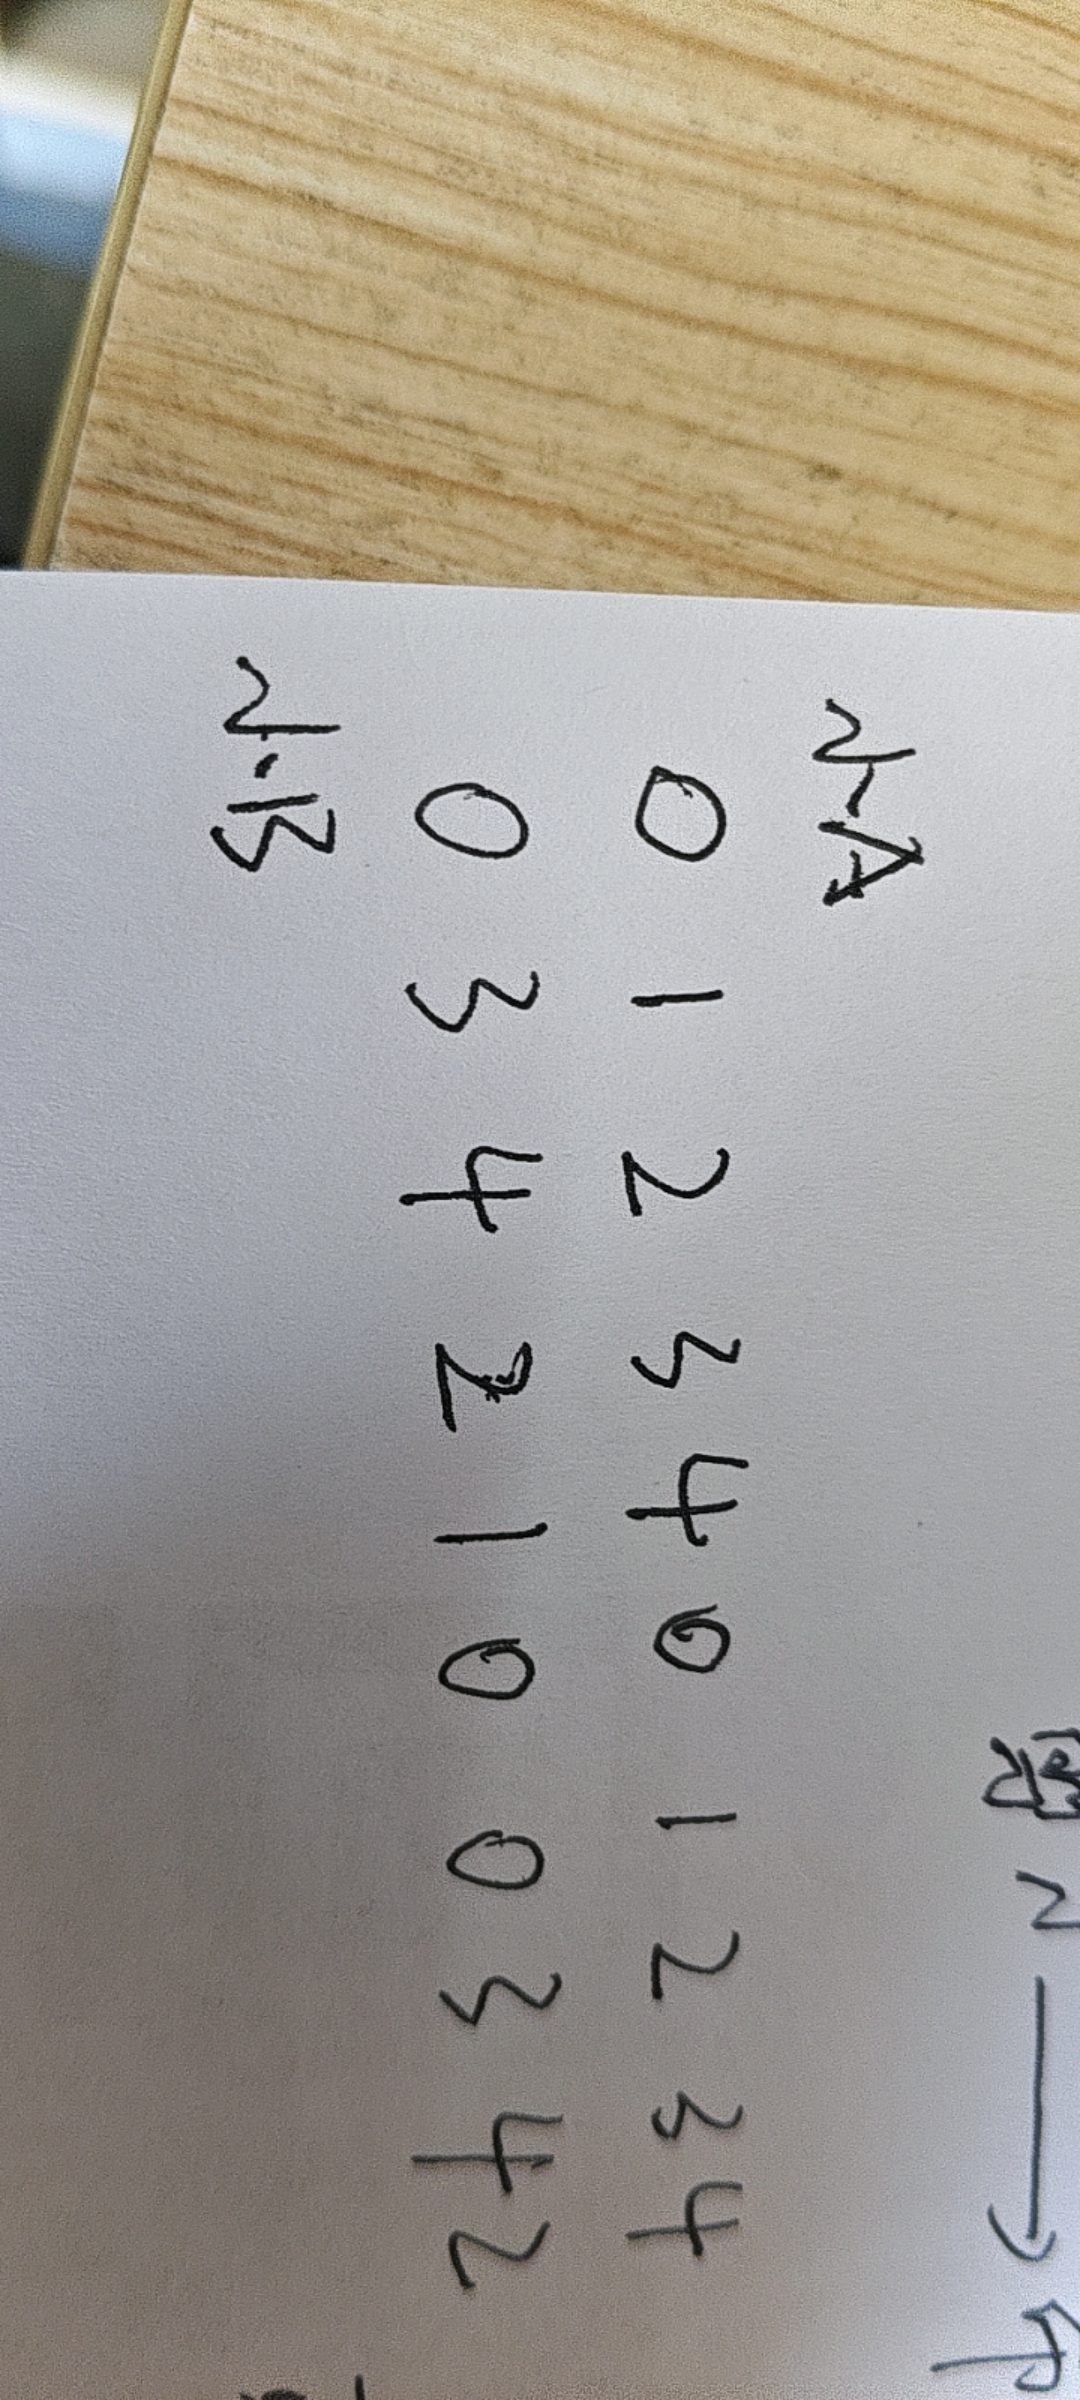 2 →
2-A
0 1 2 3 4 0 1 2 3 4
0 3 4 2 1 0 0 3 4 2
2-B